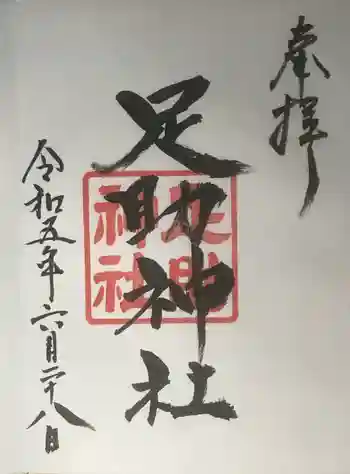 奉拝
足助神社
足助
神社
令和五年六月二十八日